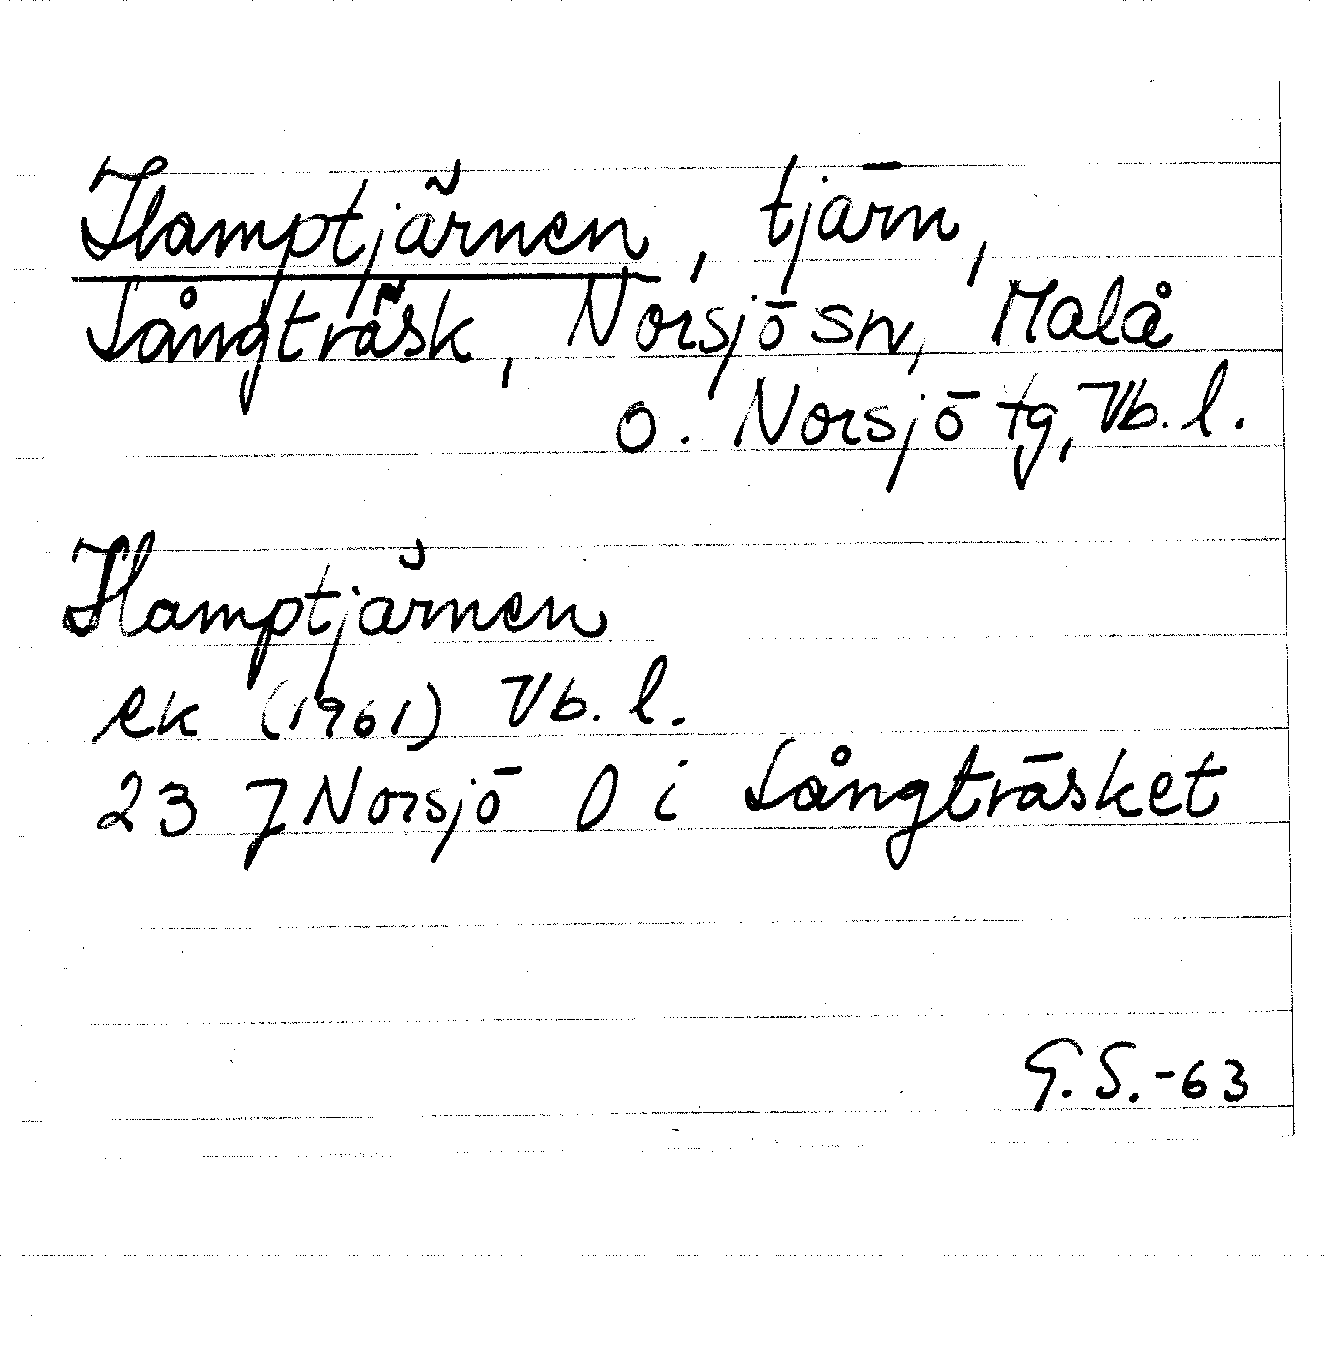 Hamptjärnen, tjärn,
Långträsk, Norsjö sn, Malå
o. Norsjö tg, Vb. l.
Hamptjärnen
ek (1961) Vb. l.
23 J Norsjö 0 i Långträsket
G.S.-63